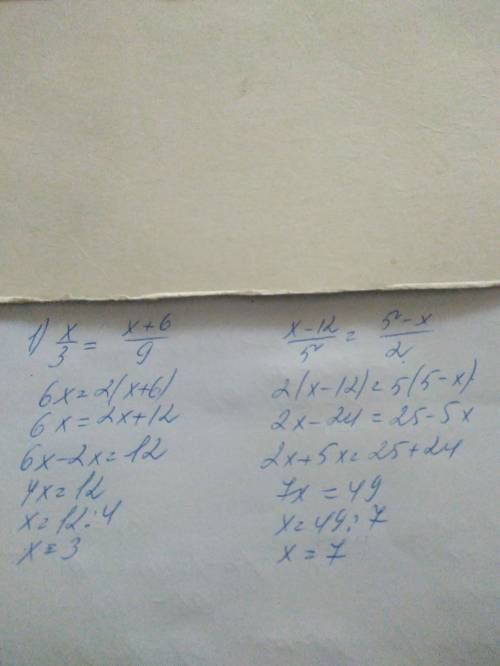 1) x/3 = (x+6)/9
6x=2(x+6)
6x=2x+12
6x-2x=12
4x=12
x=12:4
x=3
(x-12)/5 = (5-x)/2
2(x-12)=5(5-x)
2x-24=25-5x
2x+5x=25+24
7x=49
x=49:7
x=7